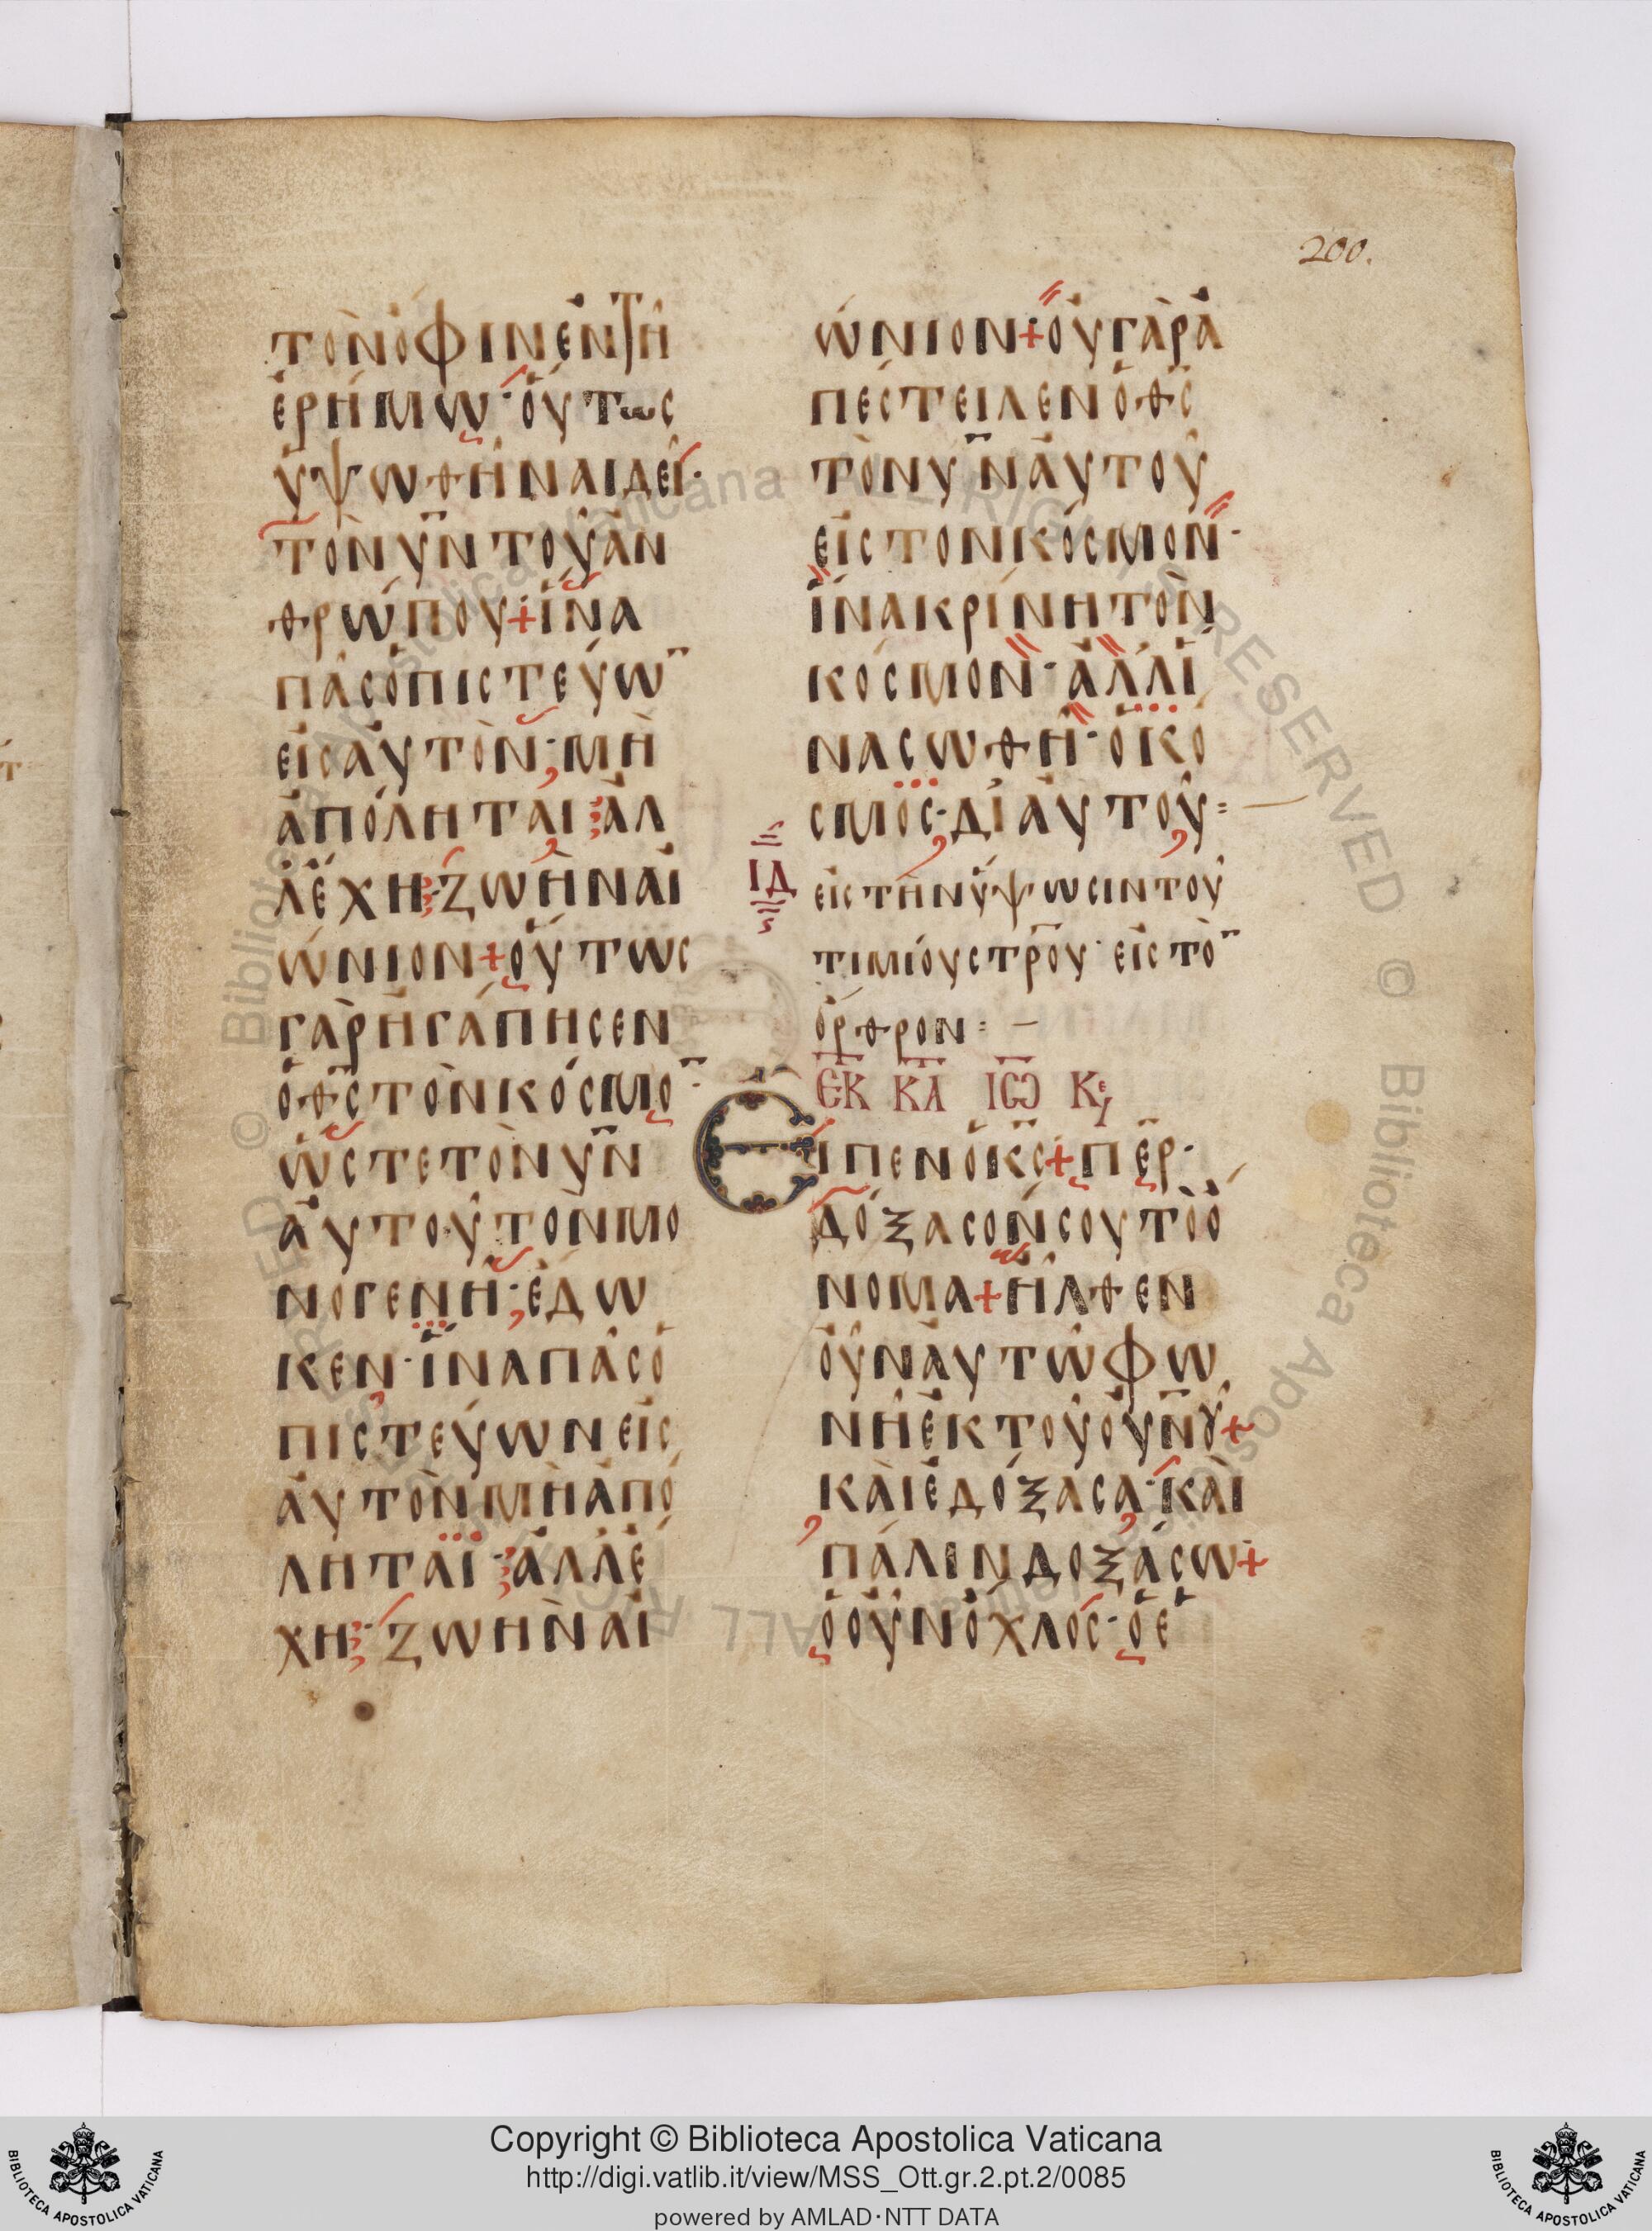 200.
τὸν ὄφιν ἐν τῇ
ἐρήμω· ὅυτως
ὑψωθῆναι δεῖ·
τὸν ΥΝ τοῦ ἀν
θρώπου + ἵνα
πᾶς ὁ πιστεύω¯
εἰς ἀυτὸν· μὴ
ἀπόληται ἀλ
λ' ἔχη· ζωὴν αἰ
ώνιον + ὅυτως
γὰρ ἠγάπησεν
ὁ ΘΣ τὸν κόσμο¯·
ὥστε τὸν ΥΝ
ἀυτοῦ τὸν μο
νογενῆ· ἔδω
κεν· ἵνα πᾶς ὁ
πιστεύων εἰς
ἀυτὸν μὴ ἀπό
ληται· ἀλλ' ἔ
χη· ζωὴν αἰ
ώνιον + ὀυ γὰρ ἀ
πέστειλεν ὁ ΘΣ
τὸν ΥΝ ἀυτοῦ
εἰς τὸν κόσμον·
ἵνα κρίνη τὸν
κόσμον· ἀλλ' ἵ
να σωθῆ· ὁ κό
σμος· δι ἀυτοῦ =
ΙΔ
εἰς τὴν ὕψωσιν τοῦ
τιμίου ΣΤΡΟΥ· εἰς τὸ¯
ὄρθρον = –
ΕΚ ΚΑ ΙΩ Κε
Εἶπεν ὁ ΚΣ + ΠΕΡ·
δόξασόν σου τὸ ὄ
νομα + ἦλθεν
ὀῦν ἀυτῶ φω
νὴ ἐκ τοῦ ΟΥΝΟΥ +
κὰι ἐδόξασα· κὰι
πάλιν δοξάσω +
ὁ ὀῦν ὄχλος· ὁ ἑ
Copyright © Biblioteca Apostolica Vaticana
http://digi.vatlib.it/view/MSS_Ott.gr.2.pt.2/0085
powered by AMLAD·NTT DATA
BIBLIOTECA APOSTOLICA VATICANA
BIBLIOTECA APOSTOLICA VATICANA